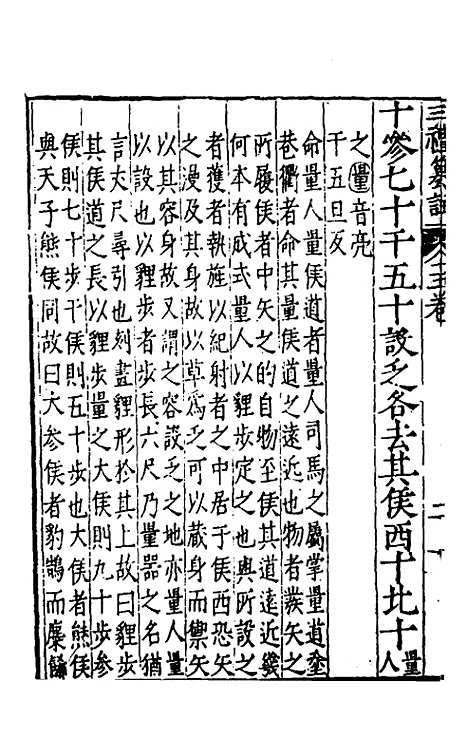 三禮纂註 卷
十參七十干五十設乏各去其侯西十北十量人
之量音亮
干五旦反
命量人量侯道者量人司馬之屬掌量道塗
巷衢者命其量侯道之遠近也物者發矢之
所履侯者中矢之的自物至侯其道遠近幾
何本有成式量人以貍步定之也與所設之
者獲者執旌以紀射者之中居于侯西恐矢
之漫及其身故以草爲乏可以蔵身而禦矢
以其容身故又謂之容設乏之地亦量人量
以設也以貍步者步長六尺乃量器之名猶
言丈尺尋引也刻畫貍形於其上故曰貍步
其侯道之長以貍步量之大侯則九十步參
侯則七十步干侯則五十步也大侯者熊侯
與天子熊侯同故曰大參侯者豹鵠而麋飾